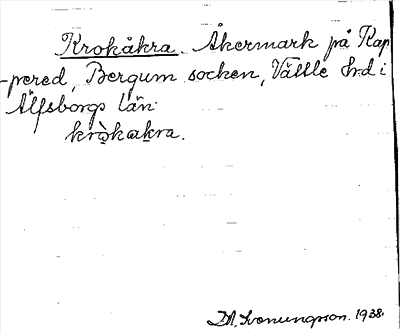 Krokåkra. Åkermark på Kap-
-pered, Bergum socken, Vättle hrd i
Älfsborgs län.
krɷ̀kakra.
D.A. Svenungsson. 1938.